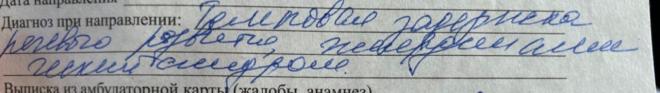 Дата направления
Диагноз при направлении: Темповая задержка
речевого развития, гипердинами
ческий синдром.
Выписка из амбулаторной карты (жалобы, анамнез)